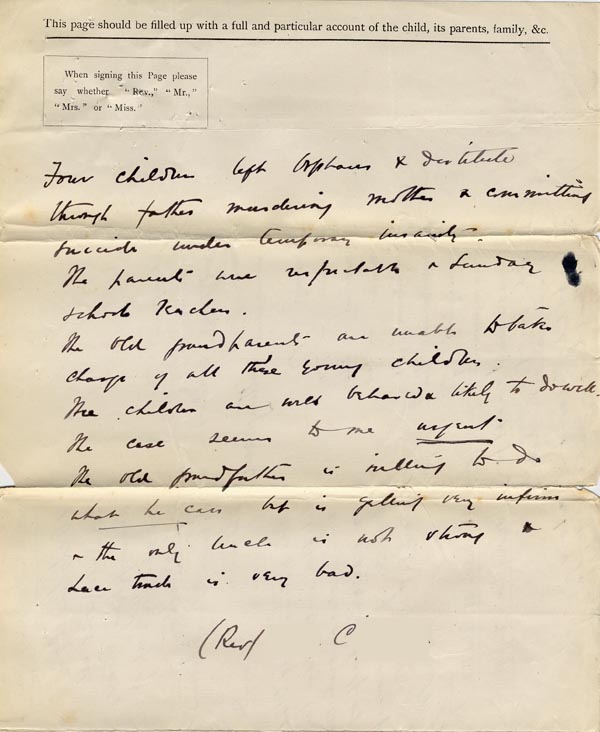 This page should be filled up with a full and particular account of the child, its parents, family, &c.
When signing this Page please
say whether "Rev.," "Mr.,"
"Mrs." or "Miss."
Four children left Orphans & destitute
through father murdering mother & committing
suicide under temporary insanity.
The parents were respectable & Sunday
school teachers.
The old grandparents are unable to take
charge of all these young children.
The children are well behaved & likely to do well.
The case seems to me urgent
The old grandfather is willing to do
what he can but is getting very infirm
& the only uncle is not strong &
Lace trade is very bad.
(Rev) C